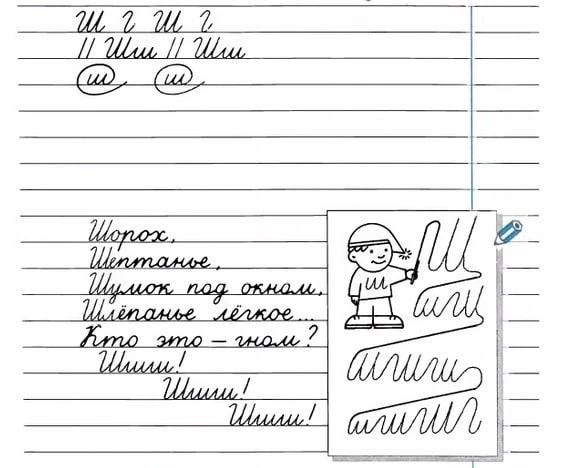 Ш г Ш г
// Шш // Шш
ш ш
Шорох,
Шептанье,
Шумок под окном,
Шлёпанье лёгкое...
Кто это – гном?
Шшш!
Шшш!
Шшш!
ш